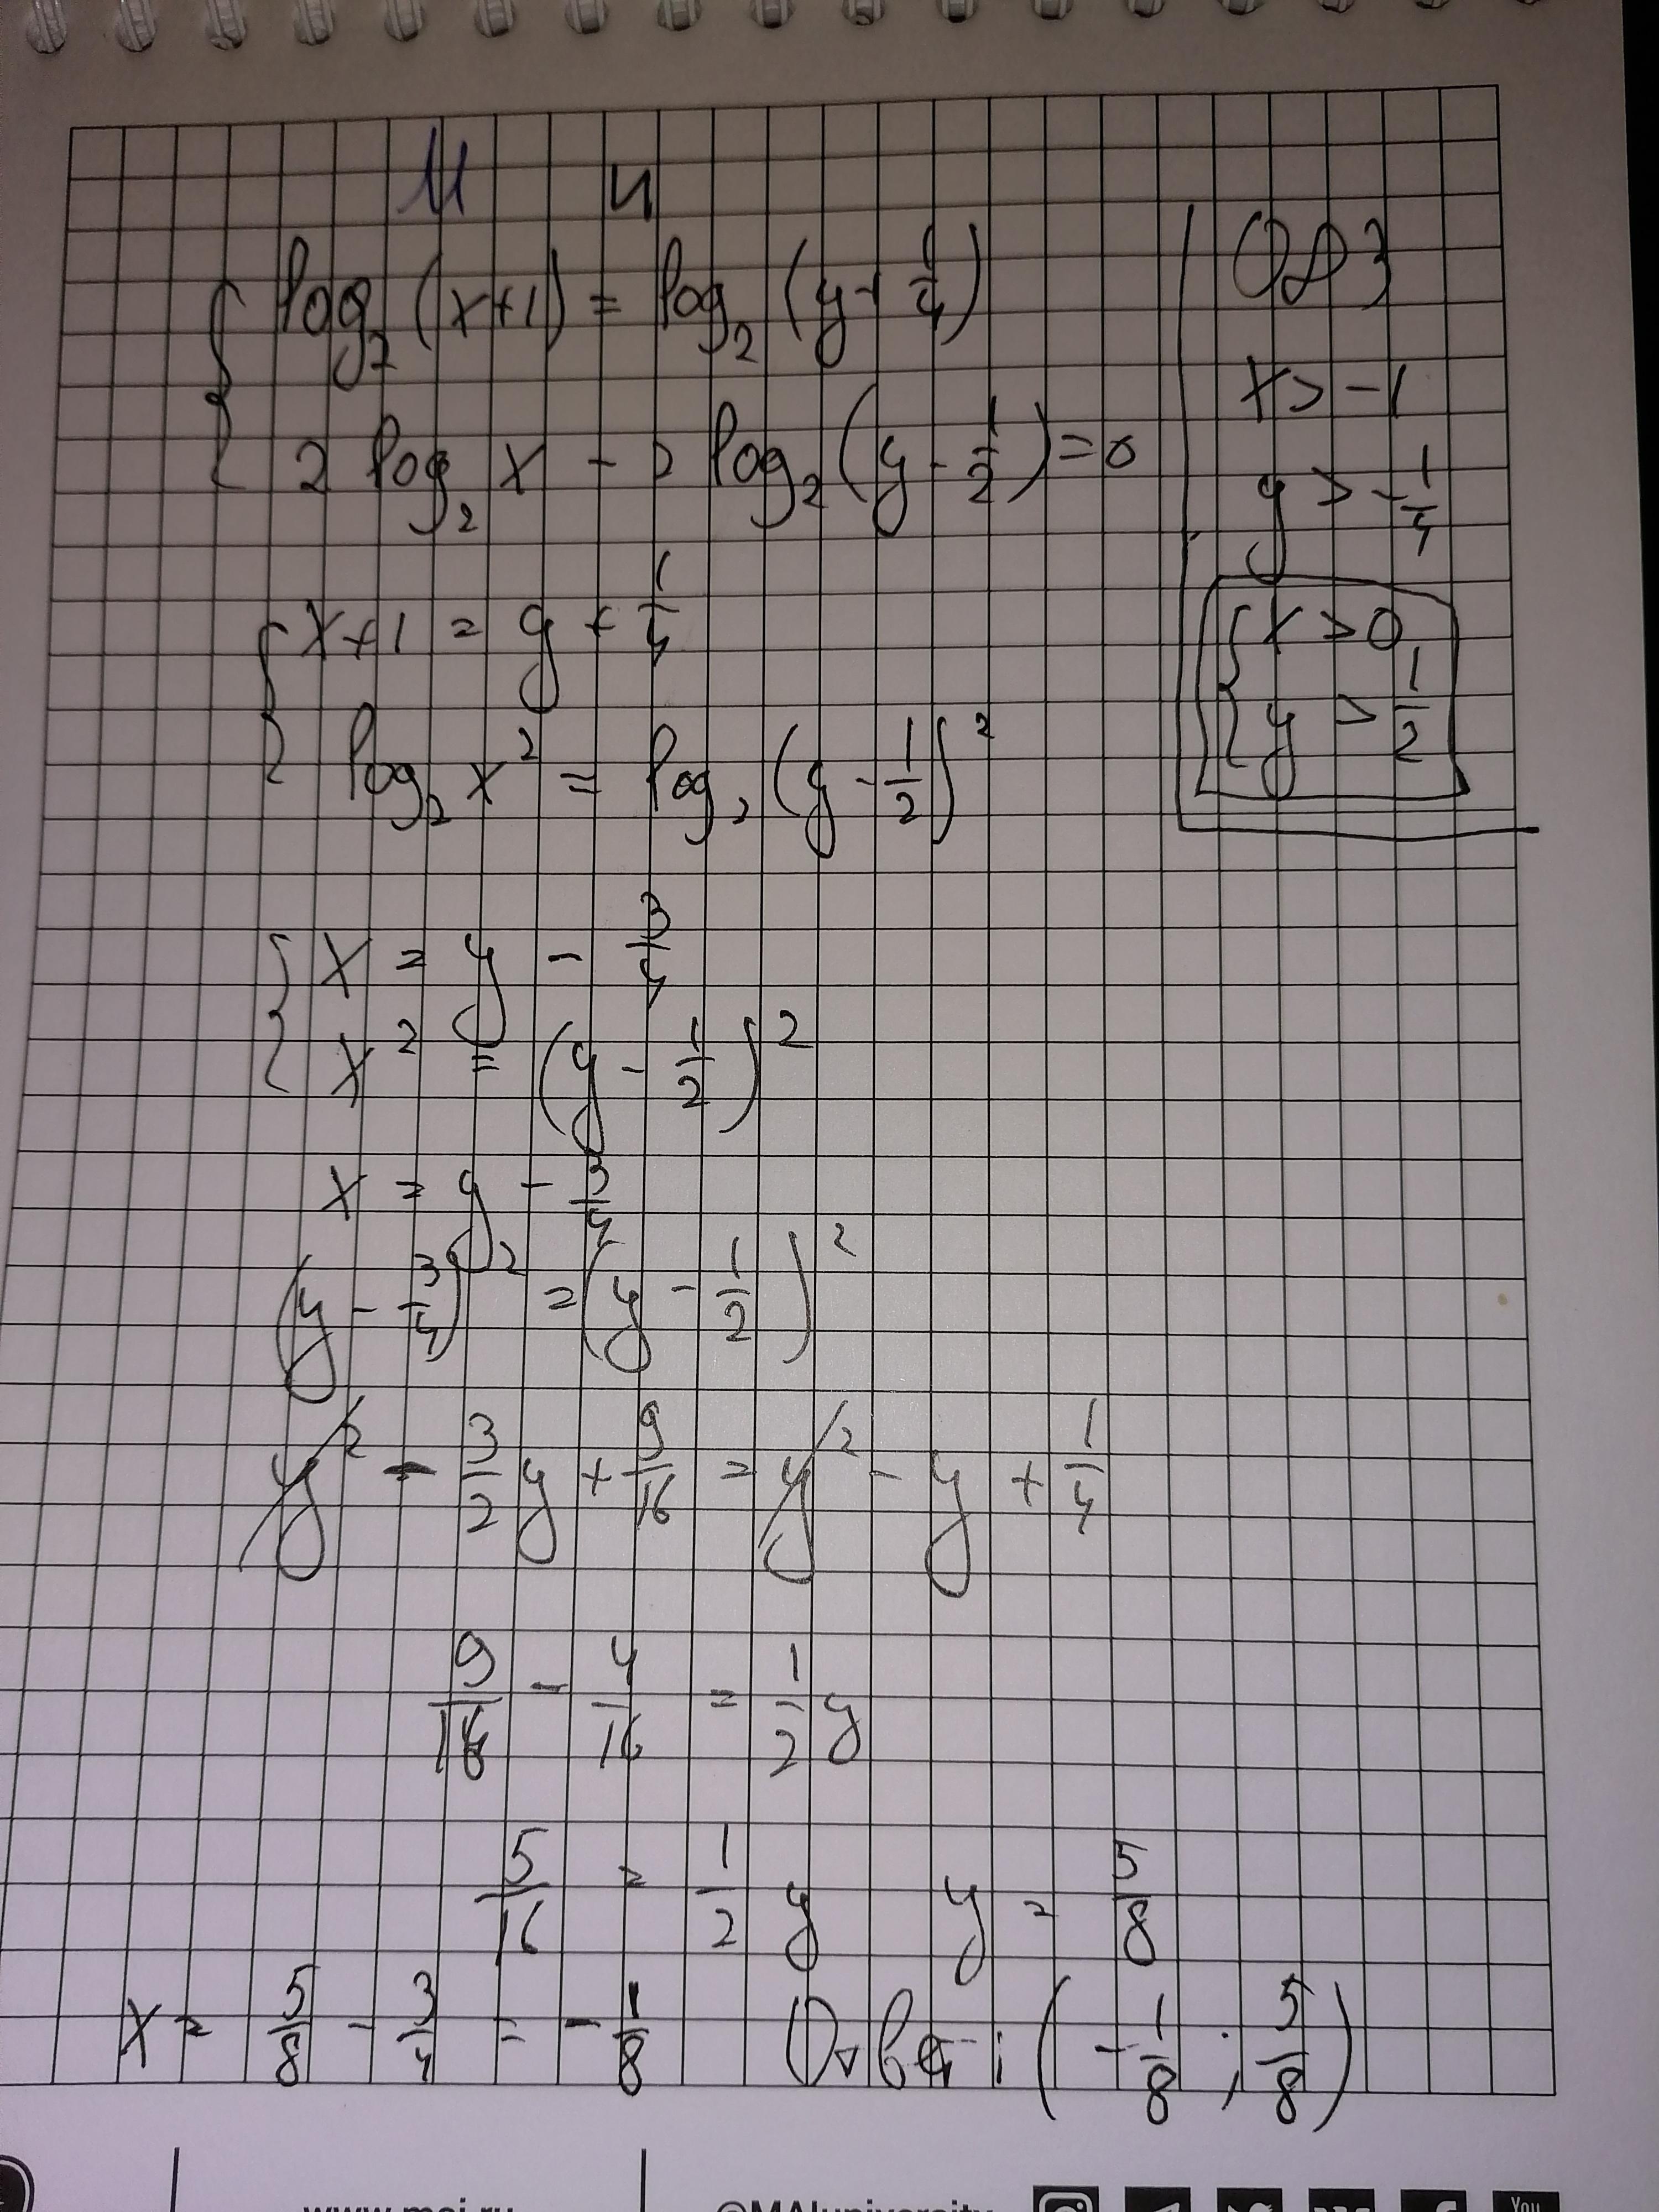 И и
log₂(x+1) = log₂(y+1/4)
2 log₂ x - 2 log₂(y - 1/2) = 0
x+1 = y + 1/4
log₂ x² = log₂ (y - 1/2)²
ОДЗ
x > -1
y > -1/4
x > 0
y > 1/2
x = y - 3/4
x² = (y - 1/2)²
x = y - 3/4
(y - 3/4)² = (y - 1/2)²
y² - 3/2 y + 9/16 = y² - y + 1/4
9/16 - 4/16 = 1/2 y
5/16 = 1/2 y y = 5/8
x = 5/8 - 3/4 = -1/8 Ответ: (-1/8 ; 5/8)
www.mai.ru @MAIuniversity You